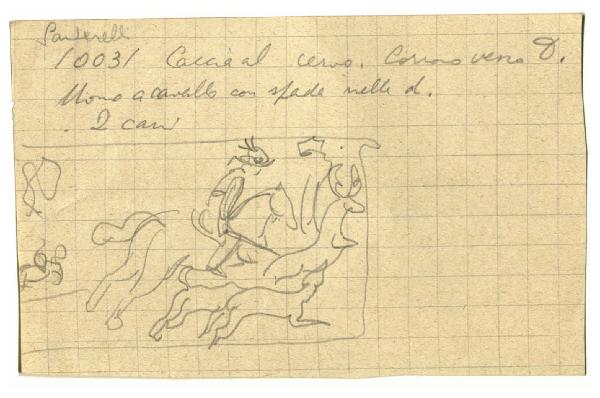 Santarelli
10031 Caccia al cervo. Corrono verso d.
Uomo a cavallo con spada nella d.
. 2 cani